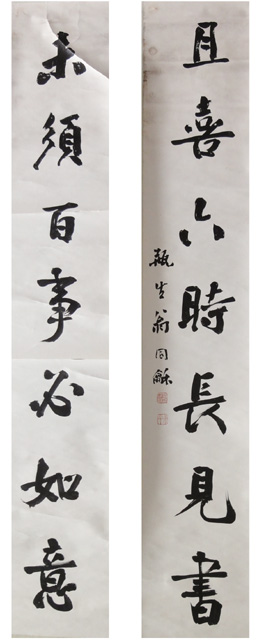 且喜六時長見書
瓶生翁同龢
未須百事必如意